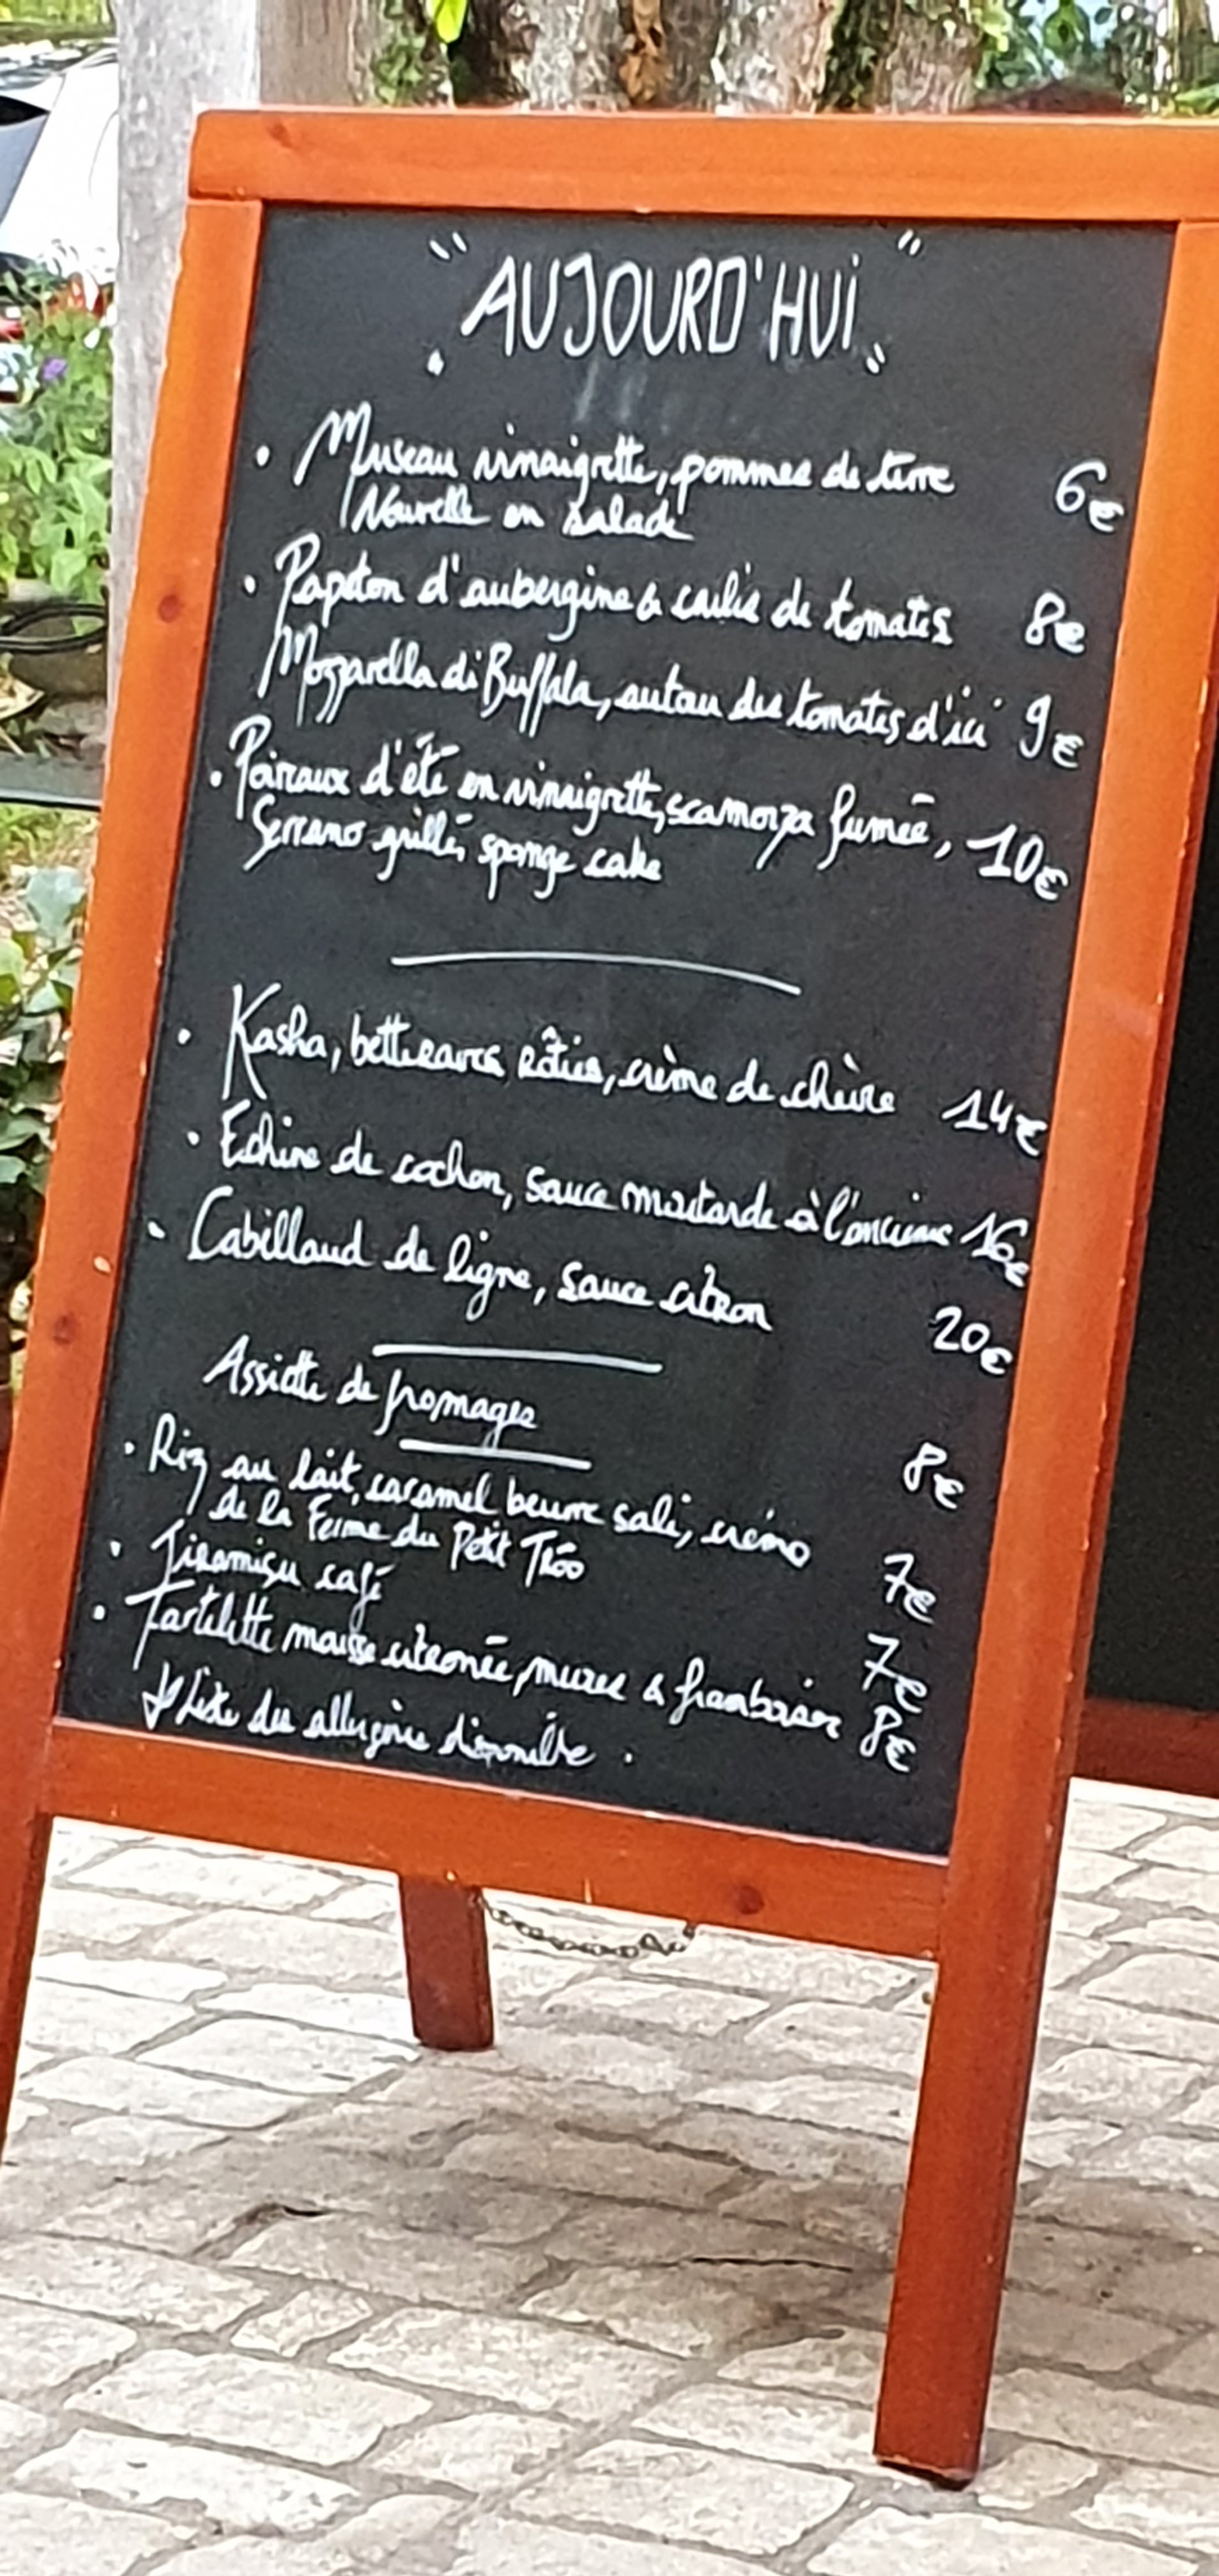 "AUJOURD'HUi"
• Museau vinaigrette, pommes de terre 6€
Nouvelle en salade
• Papeton d'aubergine & coulis de tomates 8€
Mozzarella di Buffala, autour des tomates d'ici 9€
• Poireaux d'été en vinaigrette, scamorza fumée, 10€
Serrano grillé, sponge cake
• Kasha, betteraves rôties, crème de chèvre 14€
• Echine de cochon, sauce moutarde à l'ancienne 16€
• Cabillaud de ligne, sauce citron 20€
Assiette de fromages 8€
• Riz au lait, caramel beurre salé, crémo 7€
de la Ferme du Petit Tréo
• Tiramisu café 7€
• Tartelette mousse citronée, mures & framboises 8€
Liste des allergène disponible.